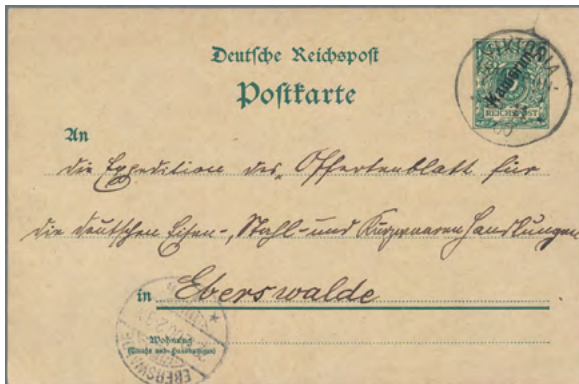 Deutsche Reichspost
Postkarte
VIKTORIA
Kamerun
REICHSPOST
An
die Expedition des Offertenblatt für
die deutschen Eisen-, Stahl- und Kurzwaaren Handlungen
in Eberswalde
Wohnung
(Straße und Hausnummer)
EBERSW